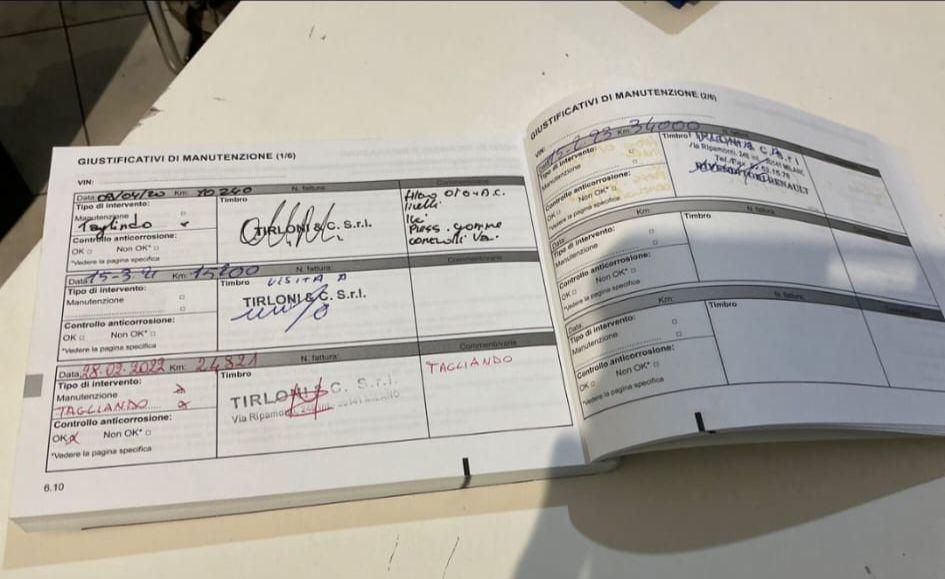 GIUSTIFICATIVI DI MANUTENZIONE (1/6)
VIN:
Data: 09/04/20 Km: 10240 N. fattura:
Tipo di intervento:
Manutenzione
Tagliando
Controllo anticorrosione:
OK Non OK*
*Vedere la pagina specifica
Timbro
TIRLONI & C. S.r.l.
Filtro olio + A.C.
livelli
Press. gomme
controlli va.
Data: 15-3-21 Km: 15200 N. fattura: Commentvarie
Tipo di intervento:
Manutenzione
Controllo anticorrosione:
OK Non OK*
*Vedere la pagina specifica
Timbro VISITA
TIRLONI & C. S.r.l.
Data: 28.02.2022 Km: 24821 N. fattura: Commentvarie
Tipo di intervento:
Manutenzione
TAGLIANDO
Controllo anticorrosione:
OK Non OK*
*Vedere la pagina specifica
Timbro
TIRLONI & C. S.r.l.
Via Ripamonti, MILANO
TAGLIANDO
6.10
GIUSTIFICATIVI DI MANUTENZIONE (2/6)
VIN:
Data: 15-2-23 Km: 34000 N. fattura:
Tipo di intervento:
Manutenzione
Controllo anticorrosione:
OK Non OK*
*Vedere la pagina specifica
Timbro
TIRLONI & C. S.r.l.
Via Ripamonti, MILANO
RENAULT
Data: Km: N. fattura:
Tipo di intervento:
Manutenzione
Controllo anticorrosione:
OK Non OK*
*Vedere la pagina specifica
Timbro
Data: Km: N. fattura:
Tipo di intervento:
Manutenzione
Controllo anticorrosione:
OK Non OK*
*Vedere la pagina specifica
Timbro